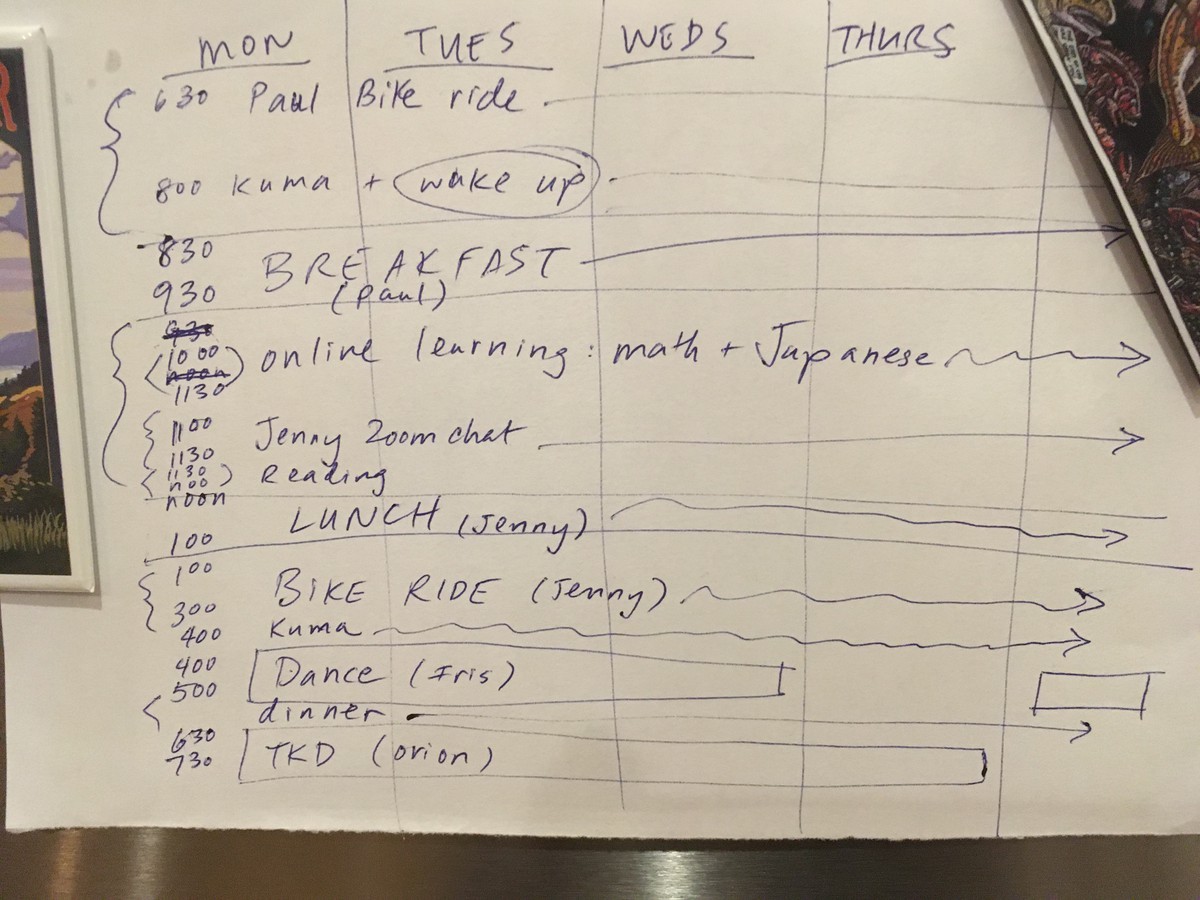 MON TUES WEDS THURS
630 Paul Bike ride
800 Kuma + wake up
830
BREAKFAST
930 (paul)
930
1000
online learning: math + Japanese
noon
1130
1100
Jenny Zoom chat
1130
1130
Reading
noon
noon
LUNCH (Jenny)
100
100
BIKE RIDE (Jenny)
300
400 Kuma
400
Dance (Iris)
500
dinner
630
TKD (orion)
730